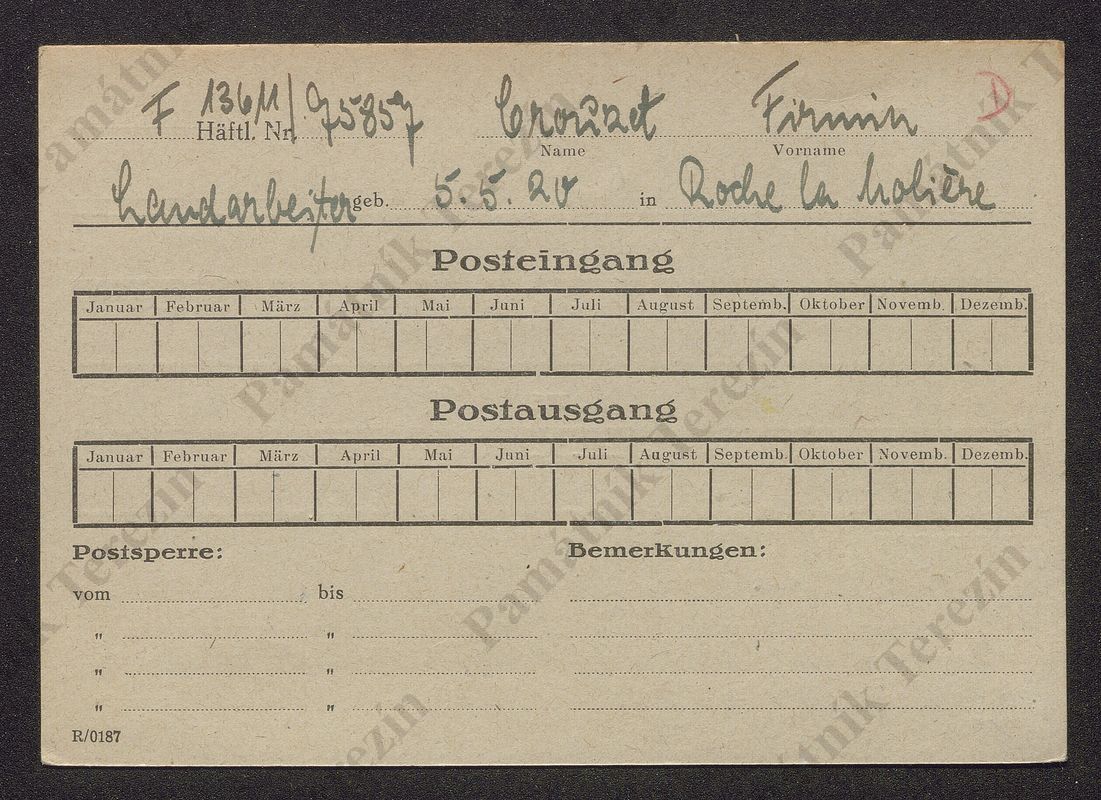 F 13611/75857 Crouzet Firmin D
Häftl. Nr. Name Vorname
Landarbeiter geb. 5.5.20 in Roche la Molière
Posteingang
Januar Februar März April Mai Juni Juli August Septemb. Oktober Novemb. Dezemb.
Postausgang
Januar Februar März April Mai Juni Juli August Septemb. Oktober Novemb. Dezemb.
Postsperre: Bemerkungen:
vom bis
" "
" "
" "
R/0187
Památník Terezín